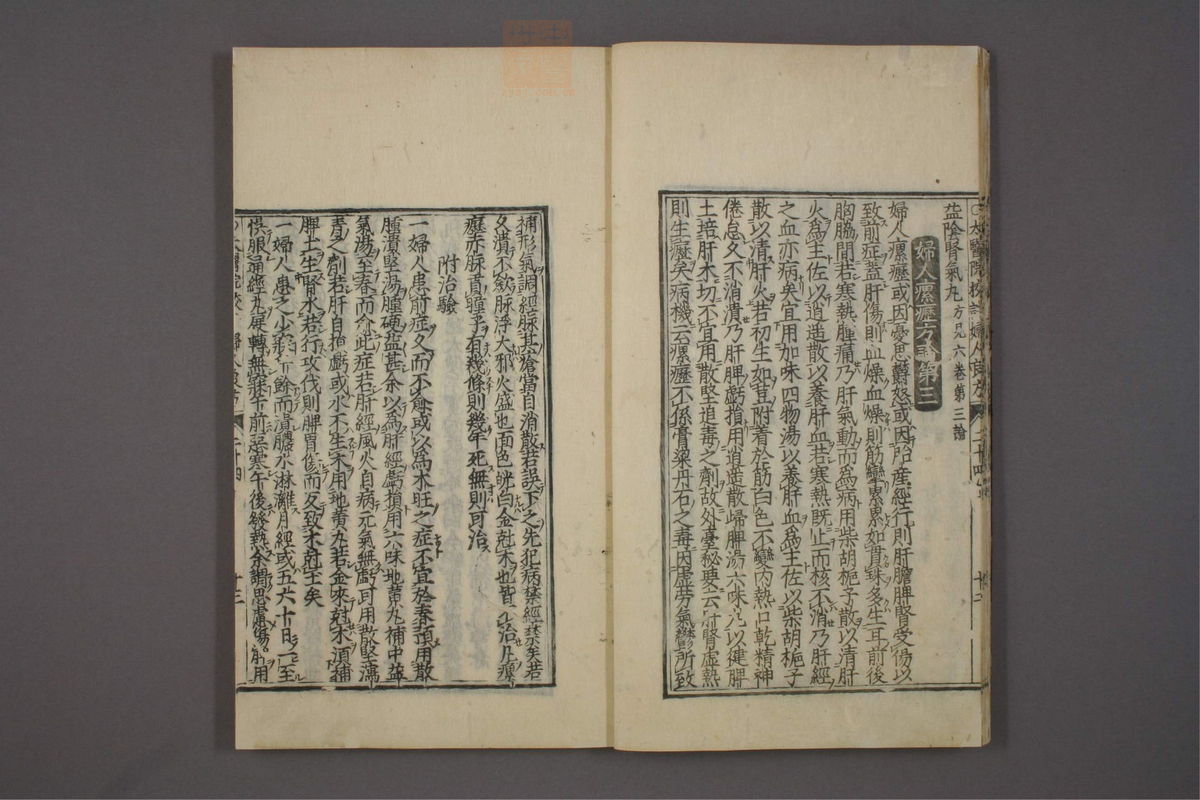 太醫院校註婦人良方 二十四
益陰腎氣丸 方見六卷第三論
婦人瘰癧方論第三
婦人瘰癧或因憂思鬱怒或因胎產經行則肝膽脾腎受傷以
致前症蓋肝傷則血燥血燥則筋攣累累如貫珠多生耳前後
胸脇間若寒熱腫痛乃肝氣動而為病用柴胡梔子散以清肝
火為主佐以逍遙散以養肝血若寒熱既止而核不消乃肝經
之血亦病矣宜用加味四物湯以養肝血為主佐以柴胡梔子
散以清肝火若初生如荳附着於筋白色不變內熱口乾精神
倦怠久不消潰乃肝脾虧損用逍遙散歸脾湯六味丸以健脾
土培肝木切不宜用散堅追毒之劑故外臺秘要云肝腎虛熱
則生癧矣病機云瘰癧不係膏粱丹石之毒因虛勞氣鬱所致
補形氣調經脉其瘡當自消散若誤下之先犯病禁經禁矣若
久潰不歛脉浮大邪火盛也面色㿠白金尅木也皆不治凡瘰
癧赤脉貫瞳子有幾條則幾年死無則可治
附治驗
一婦人患前症久而不愈或以為木旺之症不宜於春預用散
腫潰堅湯腫硬益甚余以為肝經虧損用六味地黃丸補中益
氣湯至春而愈此症若肝經風火自病元氣無虧可用散堅瀉
青之劑若肝自損虧或水不生木用地黃丸若金來尅木須補
脾土生腎水若行攻伐則脾胃傷而反致木尅土矣
一婦人患之少寐年餘而潰膿水淋漓月經或五六十日一至
誤服通經丸展轉無寐午前惡寒午後發熱余謂思慮傷脾用
二十四 廿三